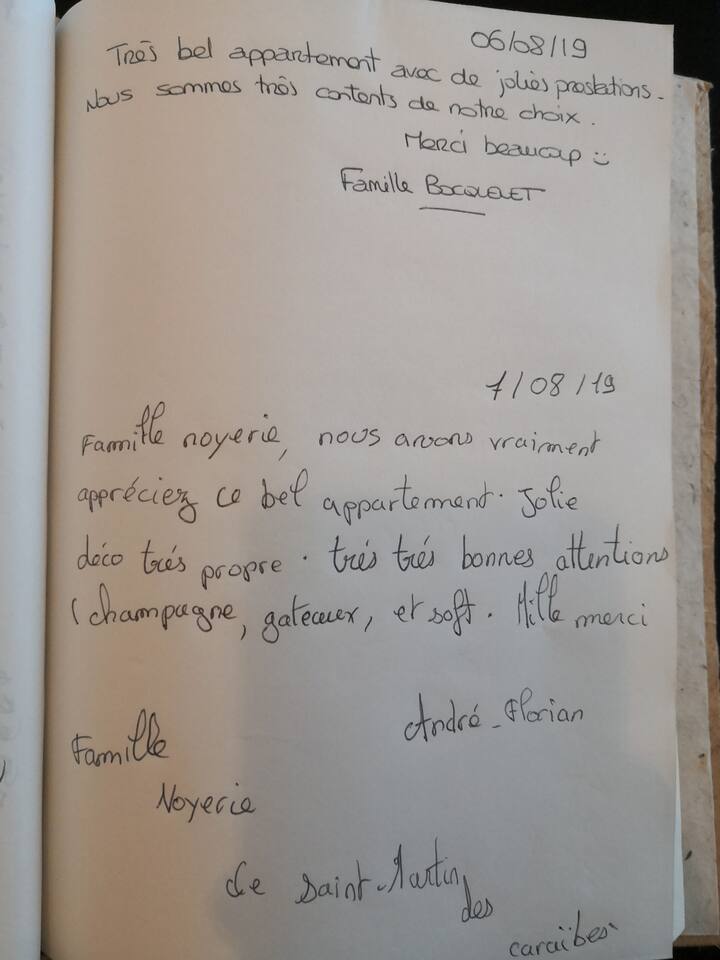 06/08/19
Très bel appartement avec de jolies prestations.
Nous sommes très contents de notre choix.
Merci beaucoup
Famille BOCQUELET
7/08/19
Famille noyerie, nous avons vraiment
appréciez ce bel appartement. Jolie
déco trés propre. trés trés bonnes attentions
(champagne, gateaux, et soft. Mille merci
André-Florian
Famille
Noyerie
de Saint-Martin
des
caraïbes